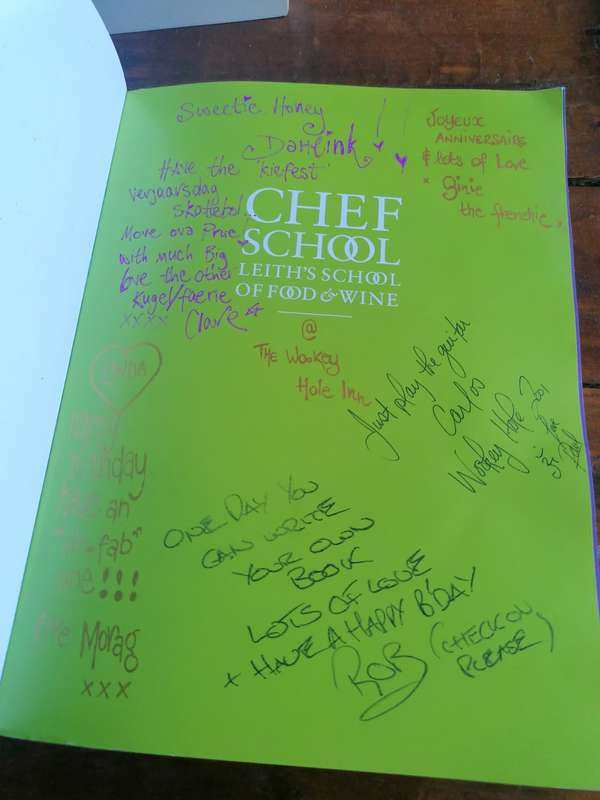 Sweetie Honey
Dahlink!
Have the 'kiefest'
verjaarsdag
Skattebol...
Move ova Prue
with much Big
love the other
Kugel/faerie
xxxx Clare
JOYEUX
ANNIVERSAIRE
& lots of Love
x ginie
the frenchie.
CHEF
SCHOOL
LEITH'S SCHOOL
OF FOOD & WINE
@
THE WOOKEY
Hole Inn
Just play the guitar
Carlos
Wookey Hole
an
"ab-fab"
!!!
Morag
xxx
ONE DAY YOU
CAN WRITE
YOUR OWN
BOOK
LOTS OF LOVE
+ HAVE A HAPPY B'DAY
ROB (CHECK ON
PLEASE)